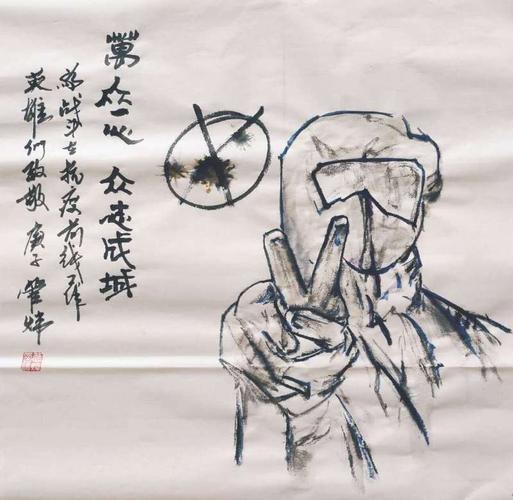 萬众一心 众志成城
为战斗在抗疫前线
英雄们致敬 庚子 管炜